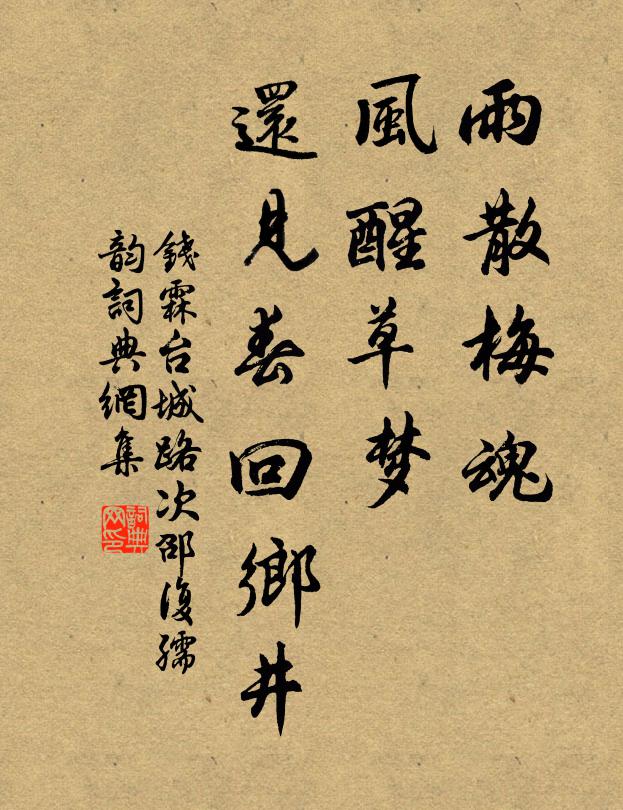 雨散梅魂
風醒草梦
還見春回鄉井
錢霖台城路次邵復孺
韵詞典網集
詞典網印